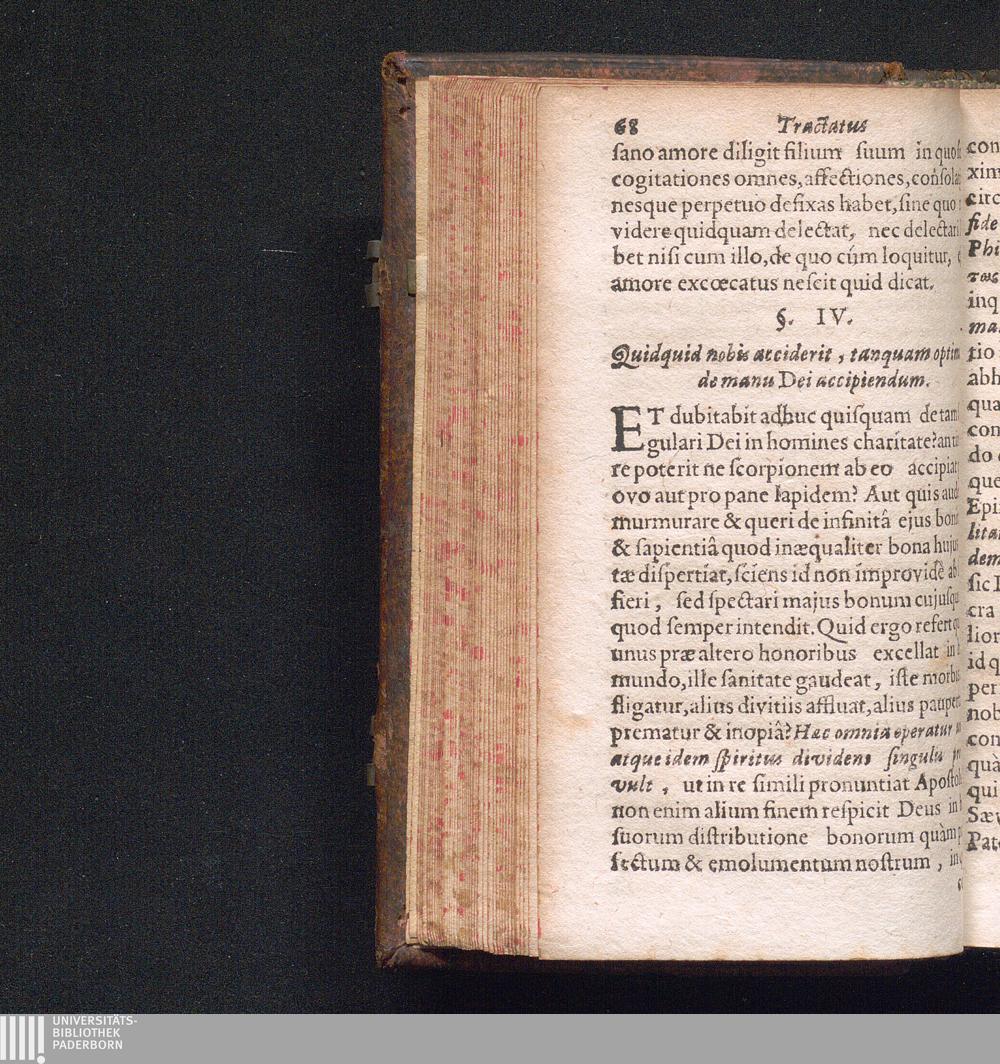 68 Tractatus
sano amore diligit filium suum in quo
cogitationes omnes, affectiones, consola
nesque perpetuo defixas habet, sine quo
videre quidquam delectat, nec delectari
bet nisi cum illo, de quo cùm loquitur,
amore excœcatus nescit quid dicat.
§. IV.
Quidquid nobis acciderit, tanquam optim
de manu Dei accipiendum.
ET dubitabit adhuc quisquam de tam
gulari Dei in homines charitate? an
re poterit ne scorpionem ab eo accipiat
ovo aut pro pane lapidem? Aut quis aud
murmurare & queri de infinitâ ejus bon
& sapientiâ quod inæqualiter bona hujus
tæ dispertiat, sciens id non improvidè ab
fieri, sed spectari majus bonum cujusq
quod semper intendit. Quid ergo refert
unus præ altero honoribus excellat in
mundo, ille sanitate gaudeat, iste morbis
fligatur, alius divitiis affluat, alius pauper
prematur & inopiâ? Hæc omnia operatur
atque idem spiritus dividens singulis
vult, ut in re simili pronuntiat Apostol
non enim alium finem respicit Deus in
suorum distributione bonorum quàm
fectum & emolumentum nostrum, in
con
xim
circ
fide
Phi
τως
inq
ma
tio
abh
qua
con
do
que
Epi
litat
dem
sic
cra
lior
id q
per
nob
con
quà
qui
Sæv
Pat
UNIVERSITÄTS-
BIBLIOTHEK
PADERBORN